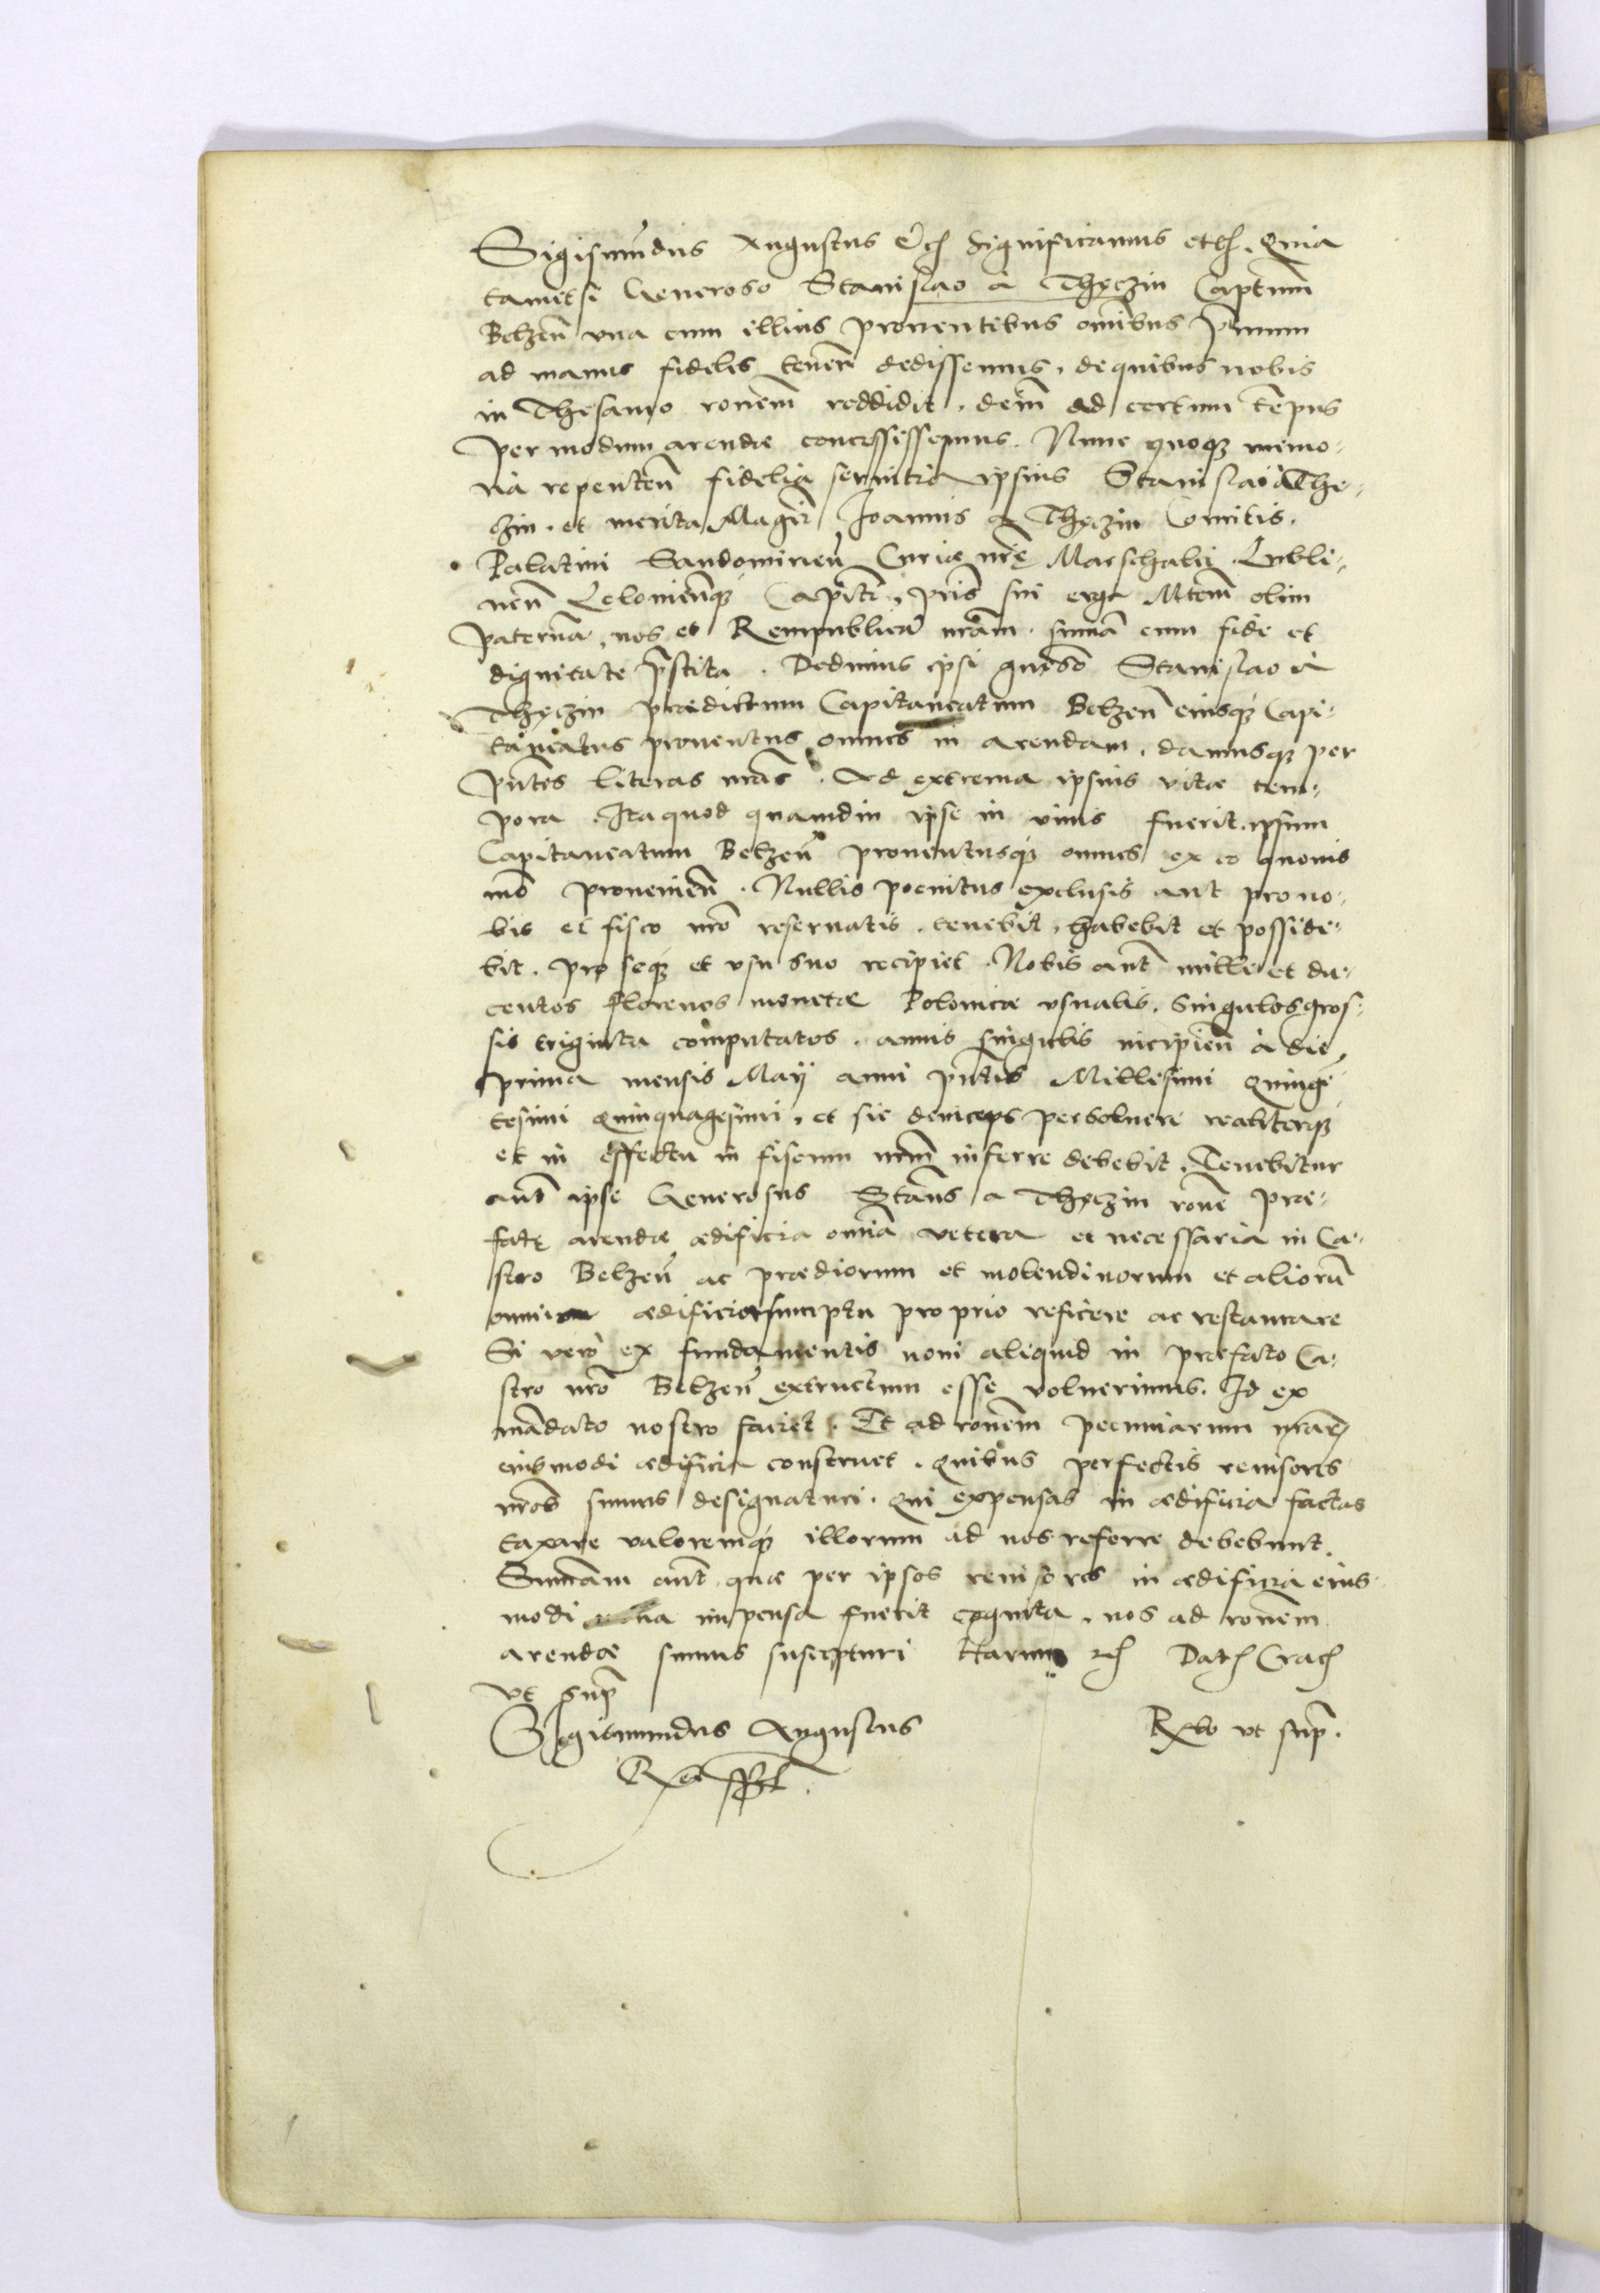 Sigismũdus Augustus Etc Significamus etc. Quia
tametsi Generoso Stanislao à Thęczin Captum̃
Belzeñ vna cum illius prouentibus om̃ibus primum
ad manus fideles teneñ dedissemus, de quibus nobis
in Thesauro rõnem reddidit, deiñ ad certum tẽpus
per modum arendæ concessissemus. Nunc quoq memo-
ria repeteñ fidelia seruitia ipsius Stanislai à The-
czin, et merita Magci Joannis a Thęczin Comitis,
Palatini Sandomirieñ Curiæ nrę Marschalci Lubli-
neñ Lelovieñq Capitei, pris sui erga Mtem̃ olim
paternã, nos et Rempublicã nrãm, sum̃a cum fide et
dignitate prestita. Dedimus ipsi gnoso Stanislao à
Thęczin prædictum Capitaneatum Belzeñ eiusq Capi-
taneatus prouentus omnes in arendam, damusq per
pñtes literas nras. Ad extrema ipsius vitæ tem-
pora. Ita quod quamdiu ipse in viuis fuerit, ipsum
Capitaneatum Belzeñ prouentusq omnes ex eo quouis
mõ prouenieñ. Nullis poenitus exclusis aut pro no-
bis et fisco nrõ reseruatis, tenebit, habebit et posside-
bit, pro seq et vsu suo recipiet. Nobis aut̃ mille et du-
centos florenos monetæ Polonicæ vsualis, Singulos gros-
sis triginta computatos, annis singulis incipieñ à die
prima mensis Maij anni pñtis Millesimi Quinge-
tesimi Quinquagesimi, et sic deinceps persoluere realiterq
et in effectu in fiscum nrm̃ inferre debebit. Tenebitur
aut̃ ipse Generosus Stãns a Thęczin rõne præ-
fatę arendæ ædificia omĩa vetera et necessaria in Ca-
stro Belzeñ ac prædiorum et molendinorum et aliorũ
omnium ædificior sumptu proprio reficere ac restaurare
Si verò ex fundamentis noui aliquid in præfato Ca-
stro nrõ Belzeñ extructum esse voluerimus. Id ex
mãdato nostro faciet. Et ad rõnem pecuniarum nrãr
eiusmodi ædificia construet. Quibus perfectis reuisores
nrõs sumus designaturi. Qui expensas in ædificia factas
taxare valoremq illorum ad nos referre debebunt.
Sum̃am aut̃ quæ per ipsos reuisores in ædificia eius-
modi impensa fuerit cognita, nos ad rõnem
arendæ sumus suscepturi Harum etc Dat Crac
vt supr
Sigismundus Augustus
Rex sspt.
Rlo vt supr.